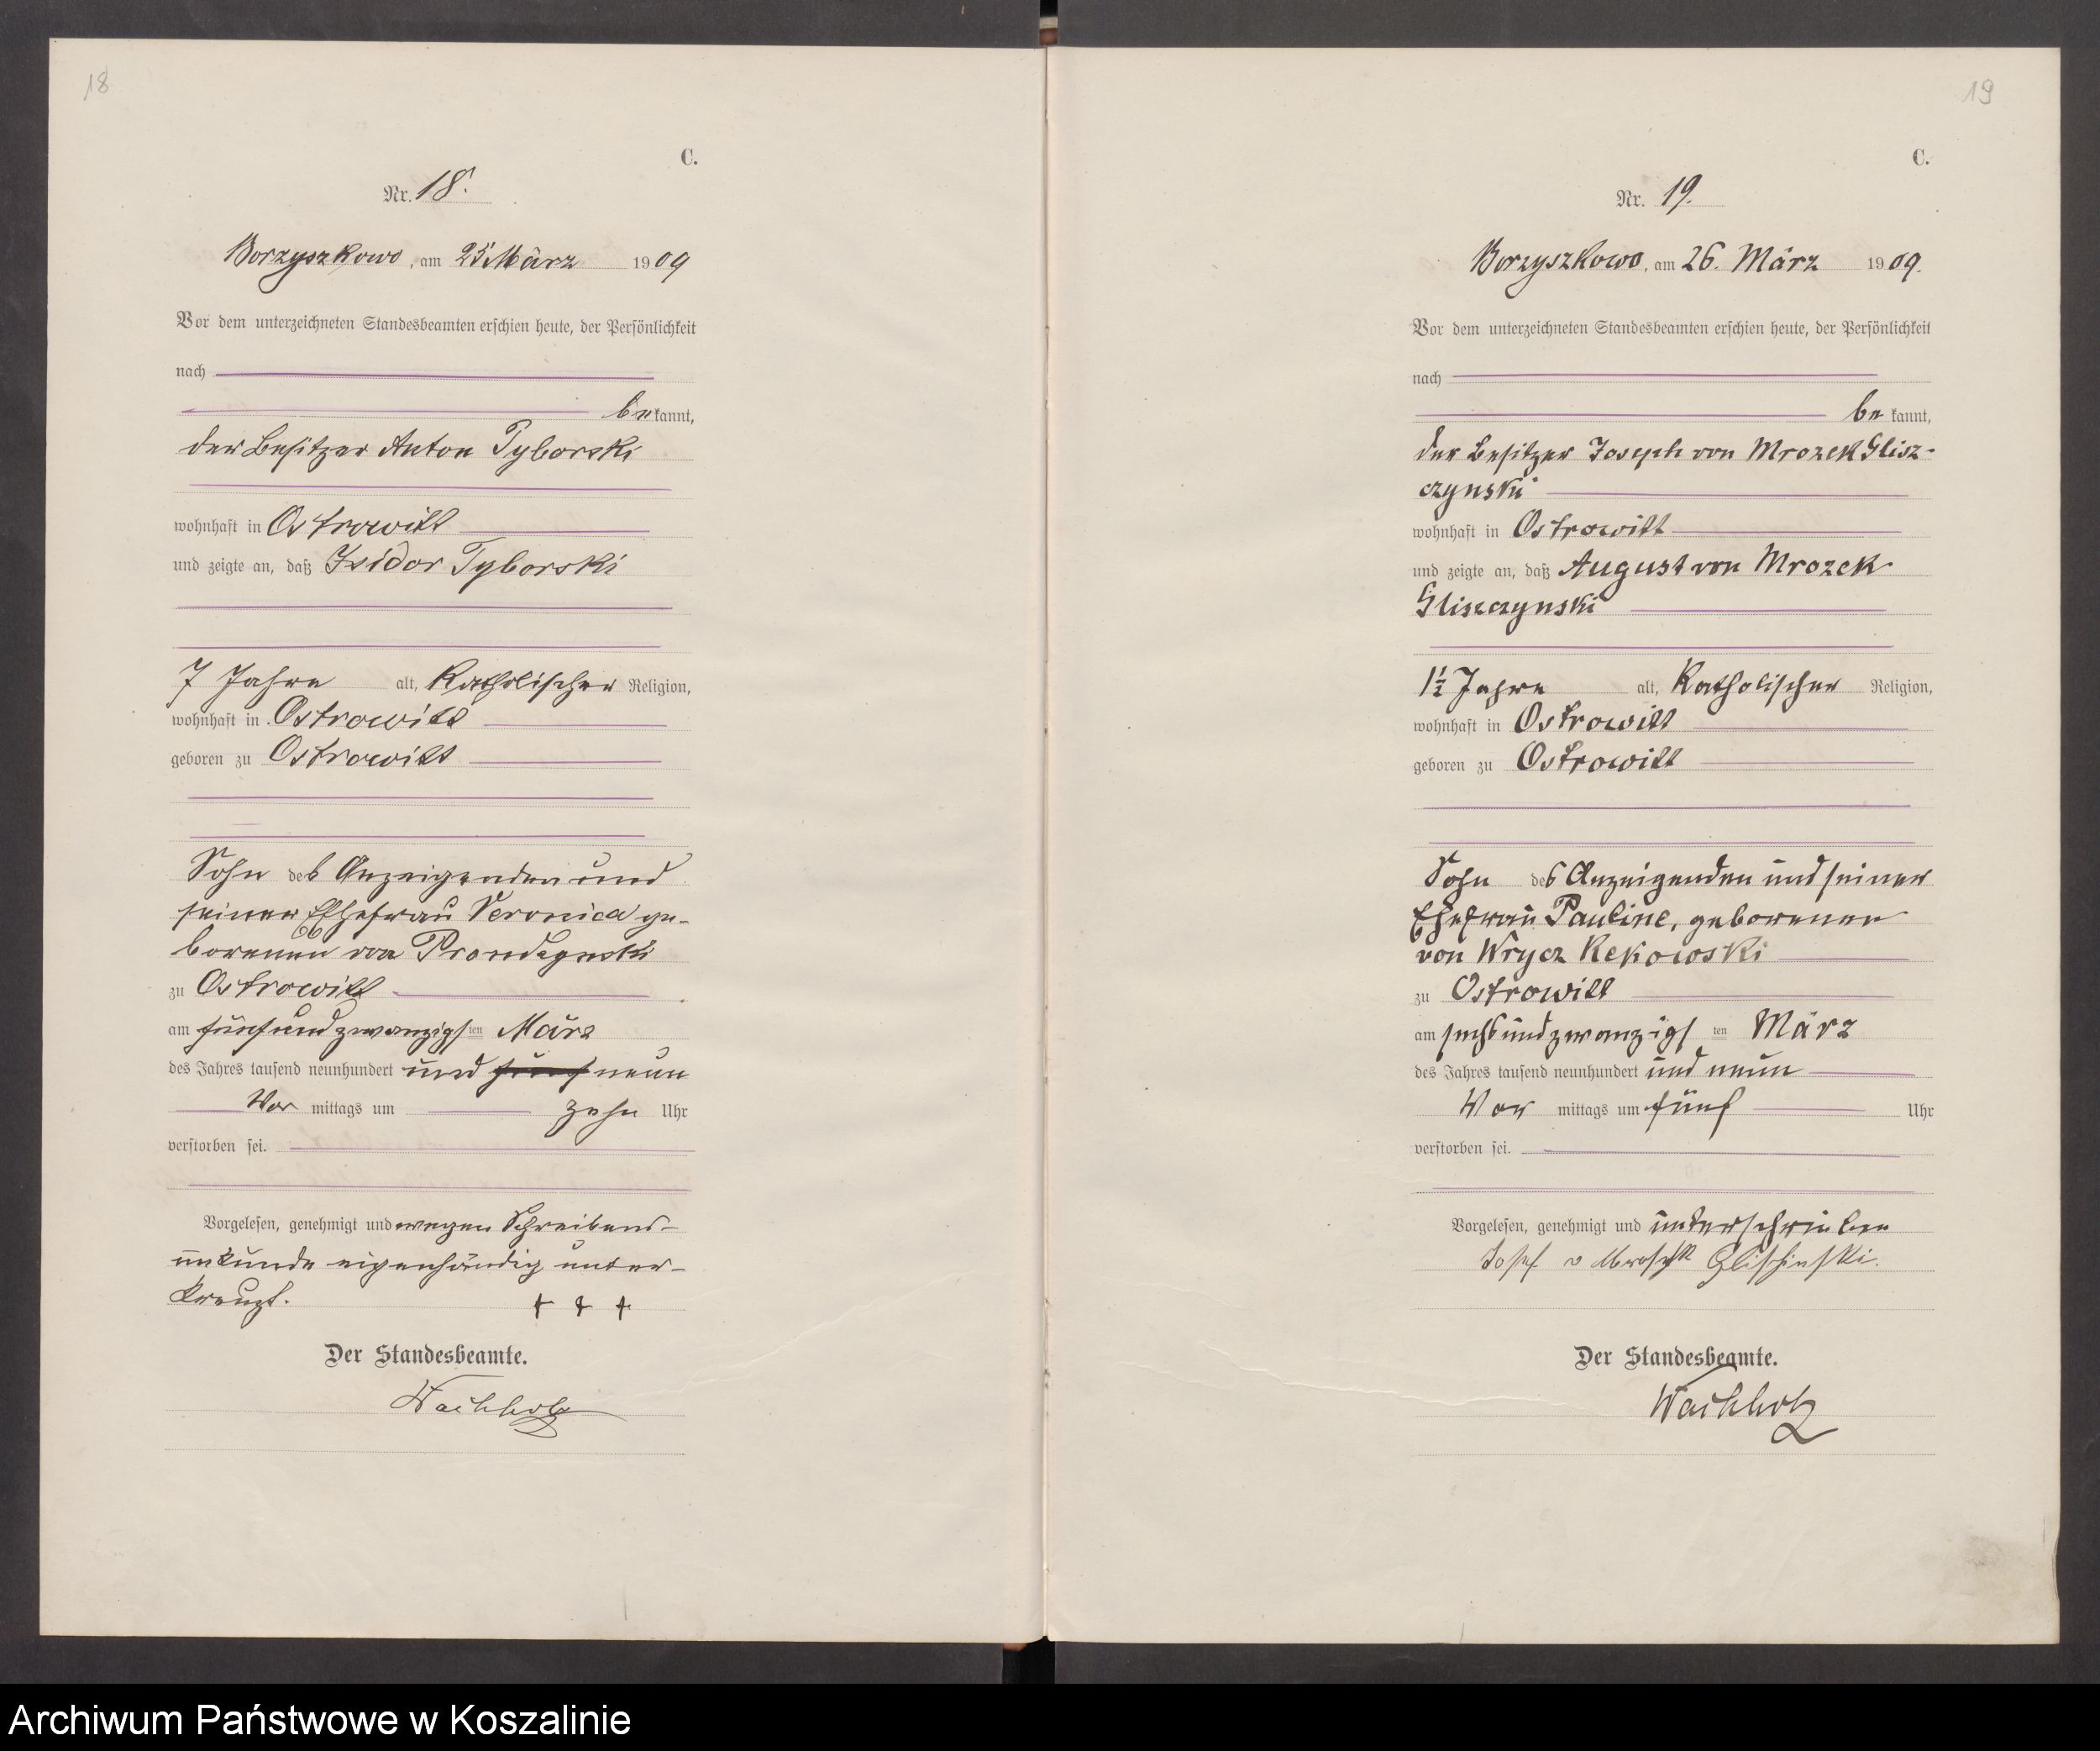 18
C.
Nr. 18.
Borzyszkowo, am 25 März 1909
Vor dem unterzeichneten Standesbeamten erschien heute, der Persönlichkeit
nach
bekannt,
der Besitzer Anton Tyborski
wohnhaft in Ostrowitt
und zeigte an, daß Isidor Tyborski
7 Jahre alt, Katholischer Religion,
wohnhaft in Ostrowitt
geboren zu Ostrowitt
Sohn des Anzeigenden und
seiner Ehefrau Veronica ge-
borenen von Prondzynski
zu Ostrowitt
am fünfundzwanzigsten März
des Jahres tausend neunhundert und fünf neun
Vor mittags um zehn Uhr
verstorben sei.
Vorgelesen, genehmigt und wegen Schreibens-
unkunde eigenhändig unter-
kreuzt. + + +
Der Standesbeamte.
Wachholz
19
C.
Nr. 19.
Borzyszkowo, am 26. März 1909.
Vor dem unterzeichneten Standesbeamten erschien heute, der Persönlichkeit
nach
bekannt,
der Besitzer Joseph von Mrozek Glisz-
czynski
wohnhaft in Ostrowitt
und zeigte an, daß August von Mrozek
Gliszczynski
1½ Jahre alt, Katholischer Religion,
wohnhaft in Ostrowitt
geboren zu Ostrowitt
Sohn des Anzeigenden und seiner
Ehefrau Pauline, geborenen
von Wrycz Rekowski
zu Ostrowitt
am sechsundzwanzigsten März
des Jahres tausend neunhundert und neun
Vor mittags um fünf Uhr
verstorben sei.
Vorgelesen, genehmigt und unterschrieben
Josef v Glischinski.
Der Standesbeamte.
Wachholz
Archiwum Państwowe w Koszalinie